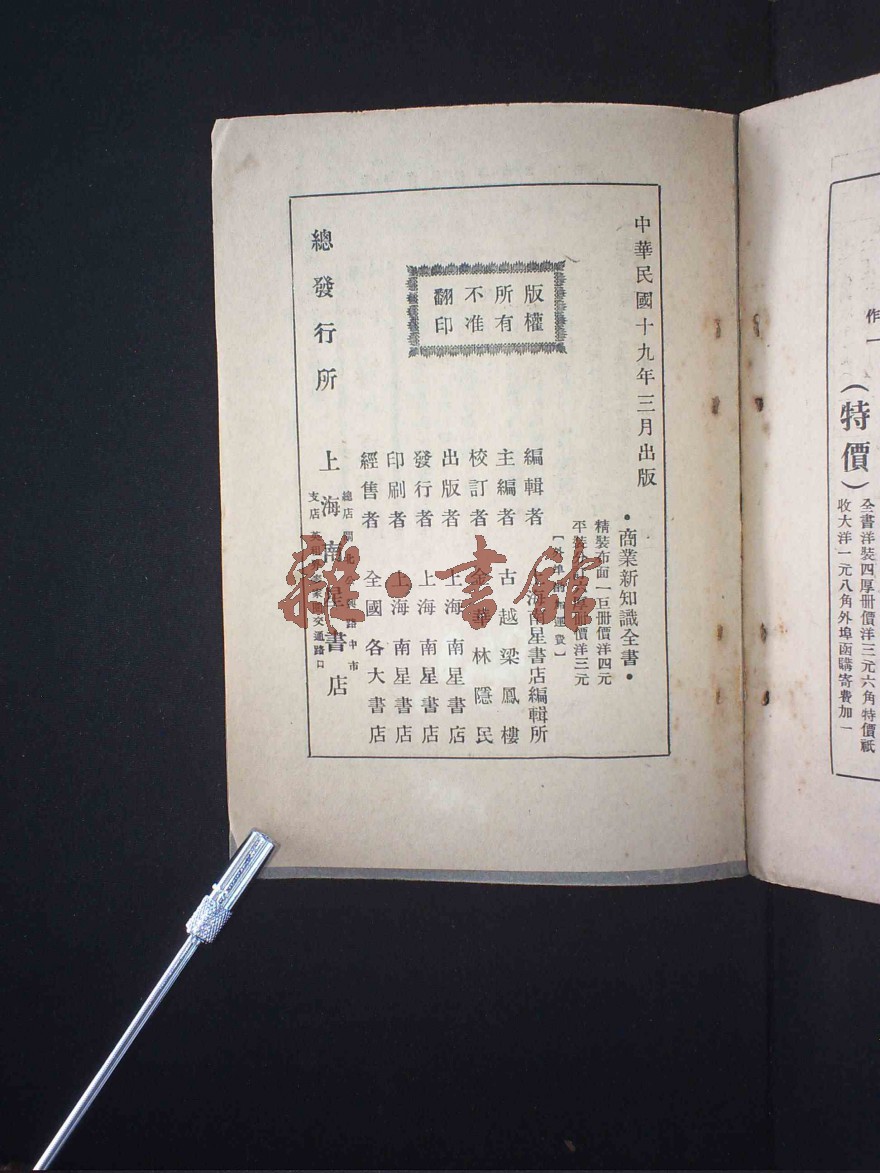 作一
(特價)
全書洋裝四厚册價洋三元六角特價祇
收大洋一元八角外埠函購寄費加一
中華民國十九年三月出版
•商業新知識全書•
精裝布面一巨册價洋四元
平裝 厚册價洋三元
版權
所有
不准
翻印
編輯者 上海南星書店編輯所
主編者 古越梁鳳樓
校訂者 金華林隱民
出版者 上海南星書店
發行者 上海南星書店
印刷者 上海南星書店
經售者 全國各大書店
總發行所 上海南星書店
總店 路中市
支店 交通路口
雜·書館